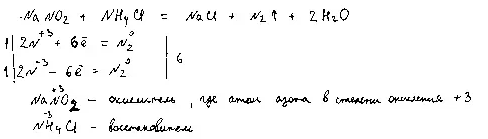 NaNO₂ + NH₄Cl = NaCl + N₂↑ + 2H₂O
1 | 2N⁺³ + 6ē = N₂⁰ | 6
1 | 2N⁻³ − 6ē = N₂⁰
NaN⁺³O₂ – окислитель, где атом азота в степени окисления +3
N⁻³H₄Cl – восстановитель